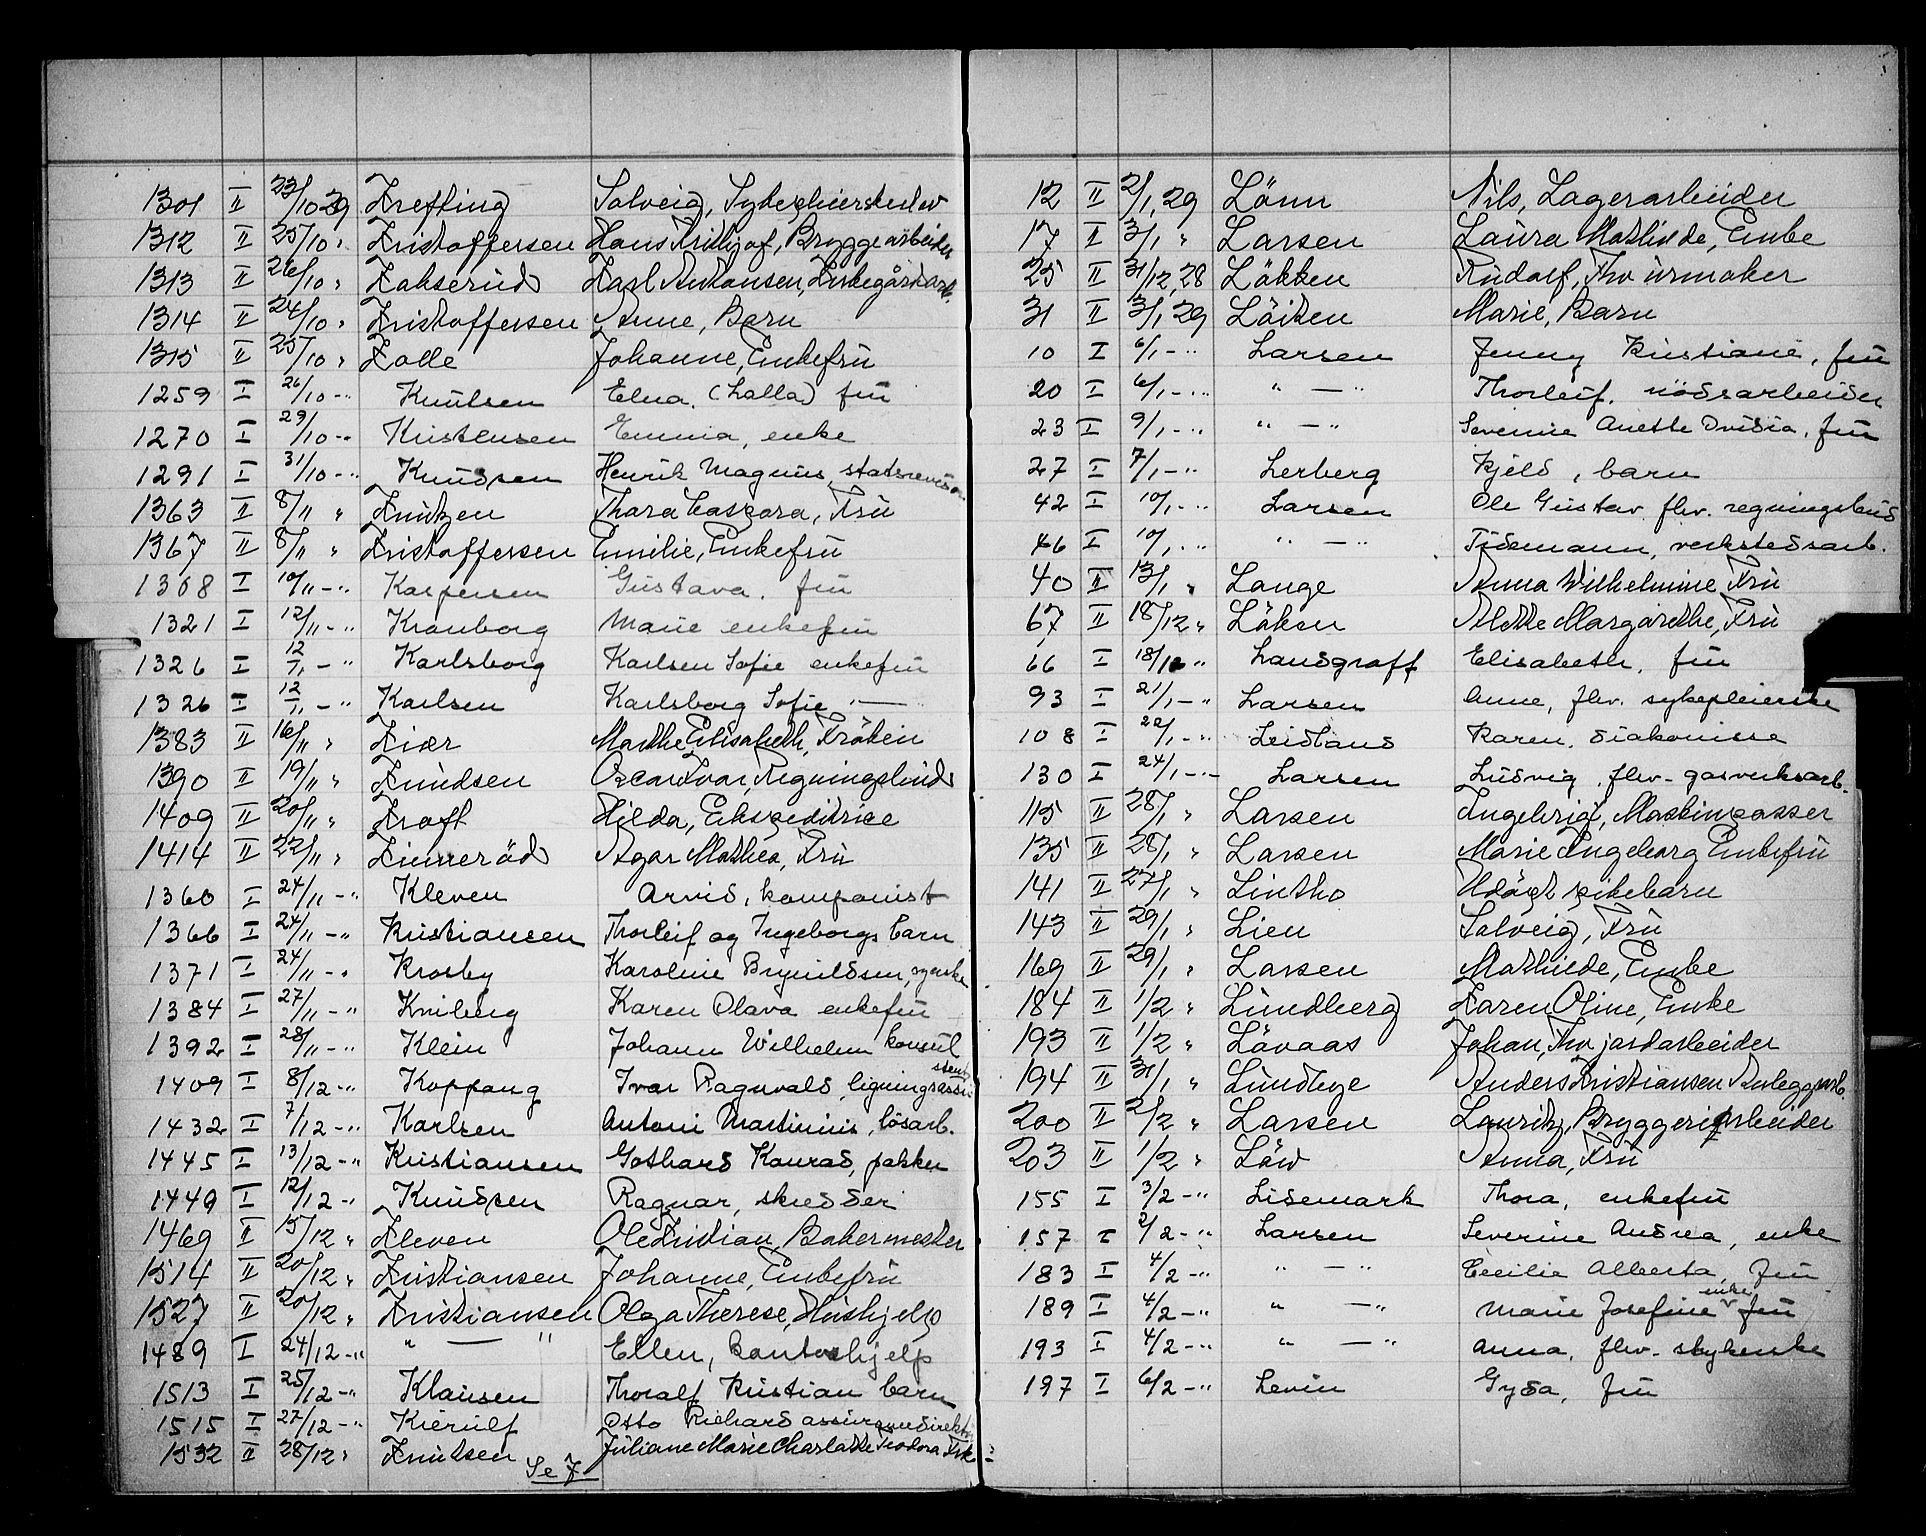 1301 II 23/10 29 Krefting Solveig, Sykepleierskeelev
1312 II 25/10 " Kristoffersen Hans Fridtjof, Bryggearbeider
1313 II 26/10 " Kakserud Karl Antonsen, Kirkegårdsarb.
1314 II 24/10 " Kristoffersen Anne, Barn
1315 II 25/10 " Kolle Johanne, Enkefru
1259 I 26/10 -"- Knutsen Elna. (Lalla) fru
1270 I 29/10 -"- Kristensen Emma, enke
1291 I 31/10 -"- Knudsen Henrik Magnus, statsrevisor
1363 II 8/11 " Knutzen Thora Caspara, Fru
1367 II 8/11 " Kristoffersen Emilie, Enkefru
1308 I 10/11 -"- Kaspersen Gustava. fru
1321 I 12/11 -"- Kranborg Marie enkefru
1326 I 12/11 -" Karlsborg Karlsen Sofie enkefru
1326 I 12/11 -" Karlsen Karlsborg Sofie -"-
1383 II 16/11 " Kiær Marthe Elisabeth, Frøken
1390 II 19/11 " Knudsen Oscar Ivar, Regningsbud
1409 II 20/11 " Kraft Hilda, Ekspeditrice
1414 II 22/11 " Kinnerød Agar Mathea, Fru
1360 I 24/11 -" Kleven Arvid, komponist
1366 I 24/11 -" Kristiansen Thorleif og Ingeborgs barn
1371 I 24/11 -" Krosby Karoline Brynildsen, syerske
1384 I 27/11 -" Kviberg Karen Olava enkefru
1392 I 28/11 -" Klein Johann Wilhelm konsul
1409 I 8/12 -" Koppang Ivar Ragnvald, ligningsassistent
1432 I 7/12 -" Karlsen Antoni Martinius, løsarb.
1445 I 13/12 -" Kristiansen Gothard Konrad, pakker
1449 I 12/12 -" Knudsen Ragnar, skredder
1469 II 15/12 " Kleven Ole Kristian, Bakermester
1514 II 20/12 " Kristiansen Johanne, Enkefru
1527 II 20/12 " Kristiansen Olga Therese, Hushjelp
1489 I 24/12 -" " — " Ellen, kontorhjelp
1513 I 25/12 -" Klausen Thoralf Kristian barn
1515 I 27/12 -" Kierulf Otto Richard assuransedirektør
1532 II 28/12 " Knutsen Juliane Marie Charlotte Teodora Frk.
Se 7
12 II 2/1 29 Lönn Nils, Lagerarbeider
17 II 3/1 " Larsen Laura Mathilde, Enke
25 II 31/12 28 Løkken Rudolf, Fhv urmaker
31 II 3/1 29 Löiten Marie, Barn
10 I 6/1 -" Larsen Jenny Kristiane, fru
20 I 6/1 -" " — " Thorleif. nødsarbeider
23 I 9/1 -" " — " Severine Anette Ovidia. fru
27 I 7/1 -" Lerberg Kjeld, barn
42 I 10/1 -" Larsen Ole Gustav fhv. regningsbud
46 I 10/1 -" " — " Tidemann, verkstedsarb.
40 II 13/1 " Lange Anna Wilhelmine, Fru
67 II 18/12 " Löken Alette Margarethe, Fru
66 I 18/12 " Landgraff Elisabeth. fru
93 I 21/1 -" Larsen Anne, fhv. sykepleierske
108 I 22/1 -" Leidland Karen. diakonisse
130 I 24/1 -" Larsen Ludvig. fhv. gasverksarb.
115 II 28/1 " Larsen Ingebrigt, Maskinpasser
135 II 28/1 " Larsen Marie Ingeborg Enkefru
141 II 27/1 " Lintho Udøpt pikebarn
143 II 29/1 " Lien Solveig, Fru
169 II 29/1 " Larsen Mathilde, Enke
184 II 1/2 " Lundberg Karen Oline, Enke
193 II 1/2 " Lövaas Johan, Fhv jordarbeider
194 II 31/1 " Lundbye Anders Kristiansen Anleggsarb.
200 II 2/2 " Larsen Lauritz, Bryggeriarbeider
203 II 1/2 " Löw Anna, Fru
155 I 3/2 -" Lidemark Thora, enkefru
157 I 2/2 -" Larsen Severine Andrea, enke
183 I 4/2 -" " — " Cecilie Alberta, fru
189 I 4/2 -" " — " Marie Josefine enkefru
193 I 4/2 -" " — " Anna, fhv. strykerske
197 I 6/2 -" Levin Gyda, fru